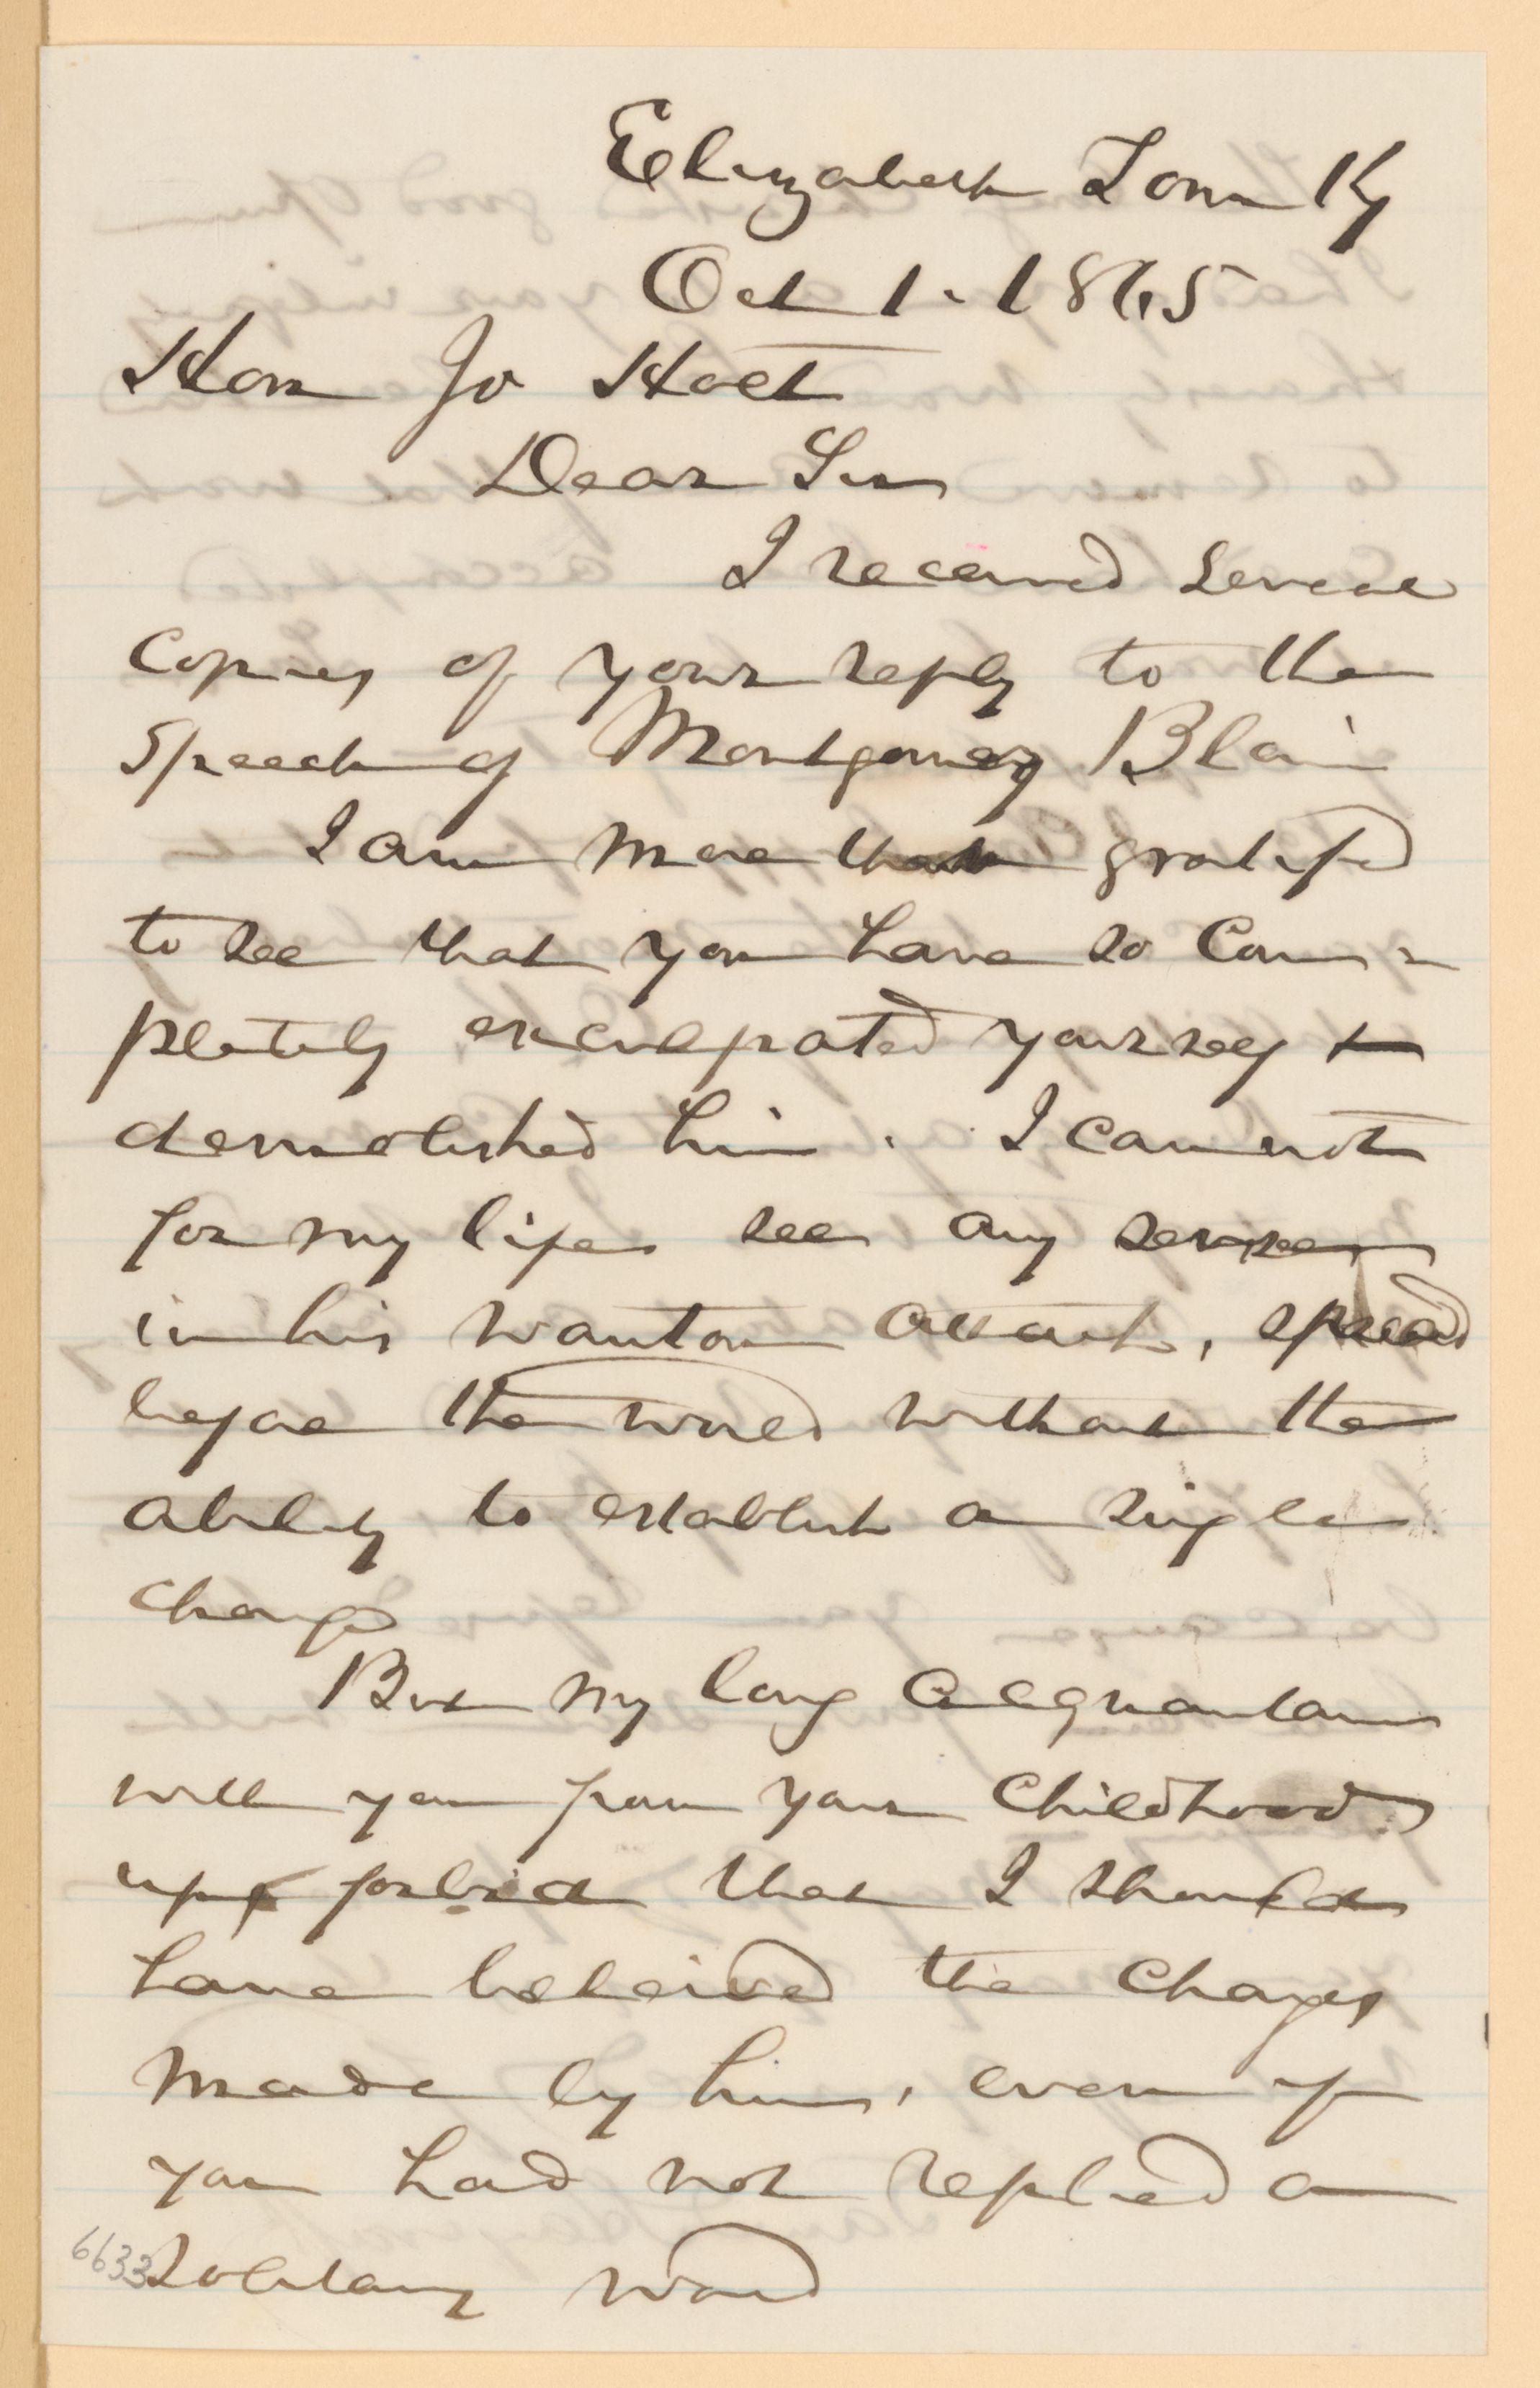 Elizabeth Town Ky
Oct 1. 1865
Hon Jo Holt
Dear Sir
I received several
Copies of your reply to the
Speech of Montgomery Blair
I am more than gratified
to see that you have so Com=
pletely exculpated yourself &
demolished him. I can not
for my life see any sense
in his wanton attack, spread
before the world without the
ability to establish a single
charge
But my long acquaintance
with you from your Childhood
up forbid that I should
have beleived the charges
made by him, even if
you had not replied a
Solitary word
6633